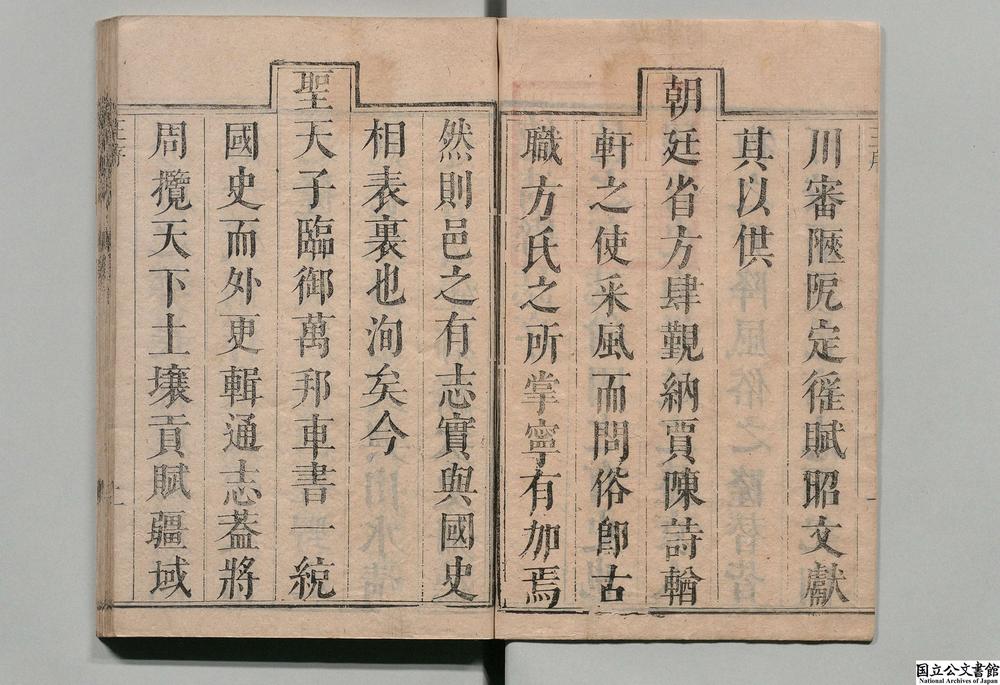 川審陿阨定徭賦昭文獻
其以供
朝廷省方肆覲納賈陳詩輶
軒之使采風而問俗卽古
職方氏之所掌寧有加焉
然則邑之有志實與國史
相表裏也洵矣今
聖天子臨御萬邦車書一統
國史而外更輯通志蓋將
周攬天下土壤貢賦疆域
国立公文書館
National Archives of Japan